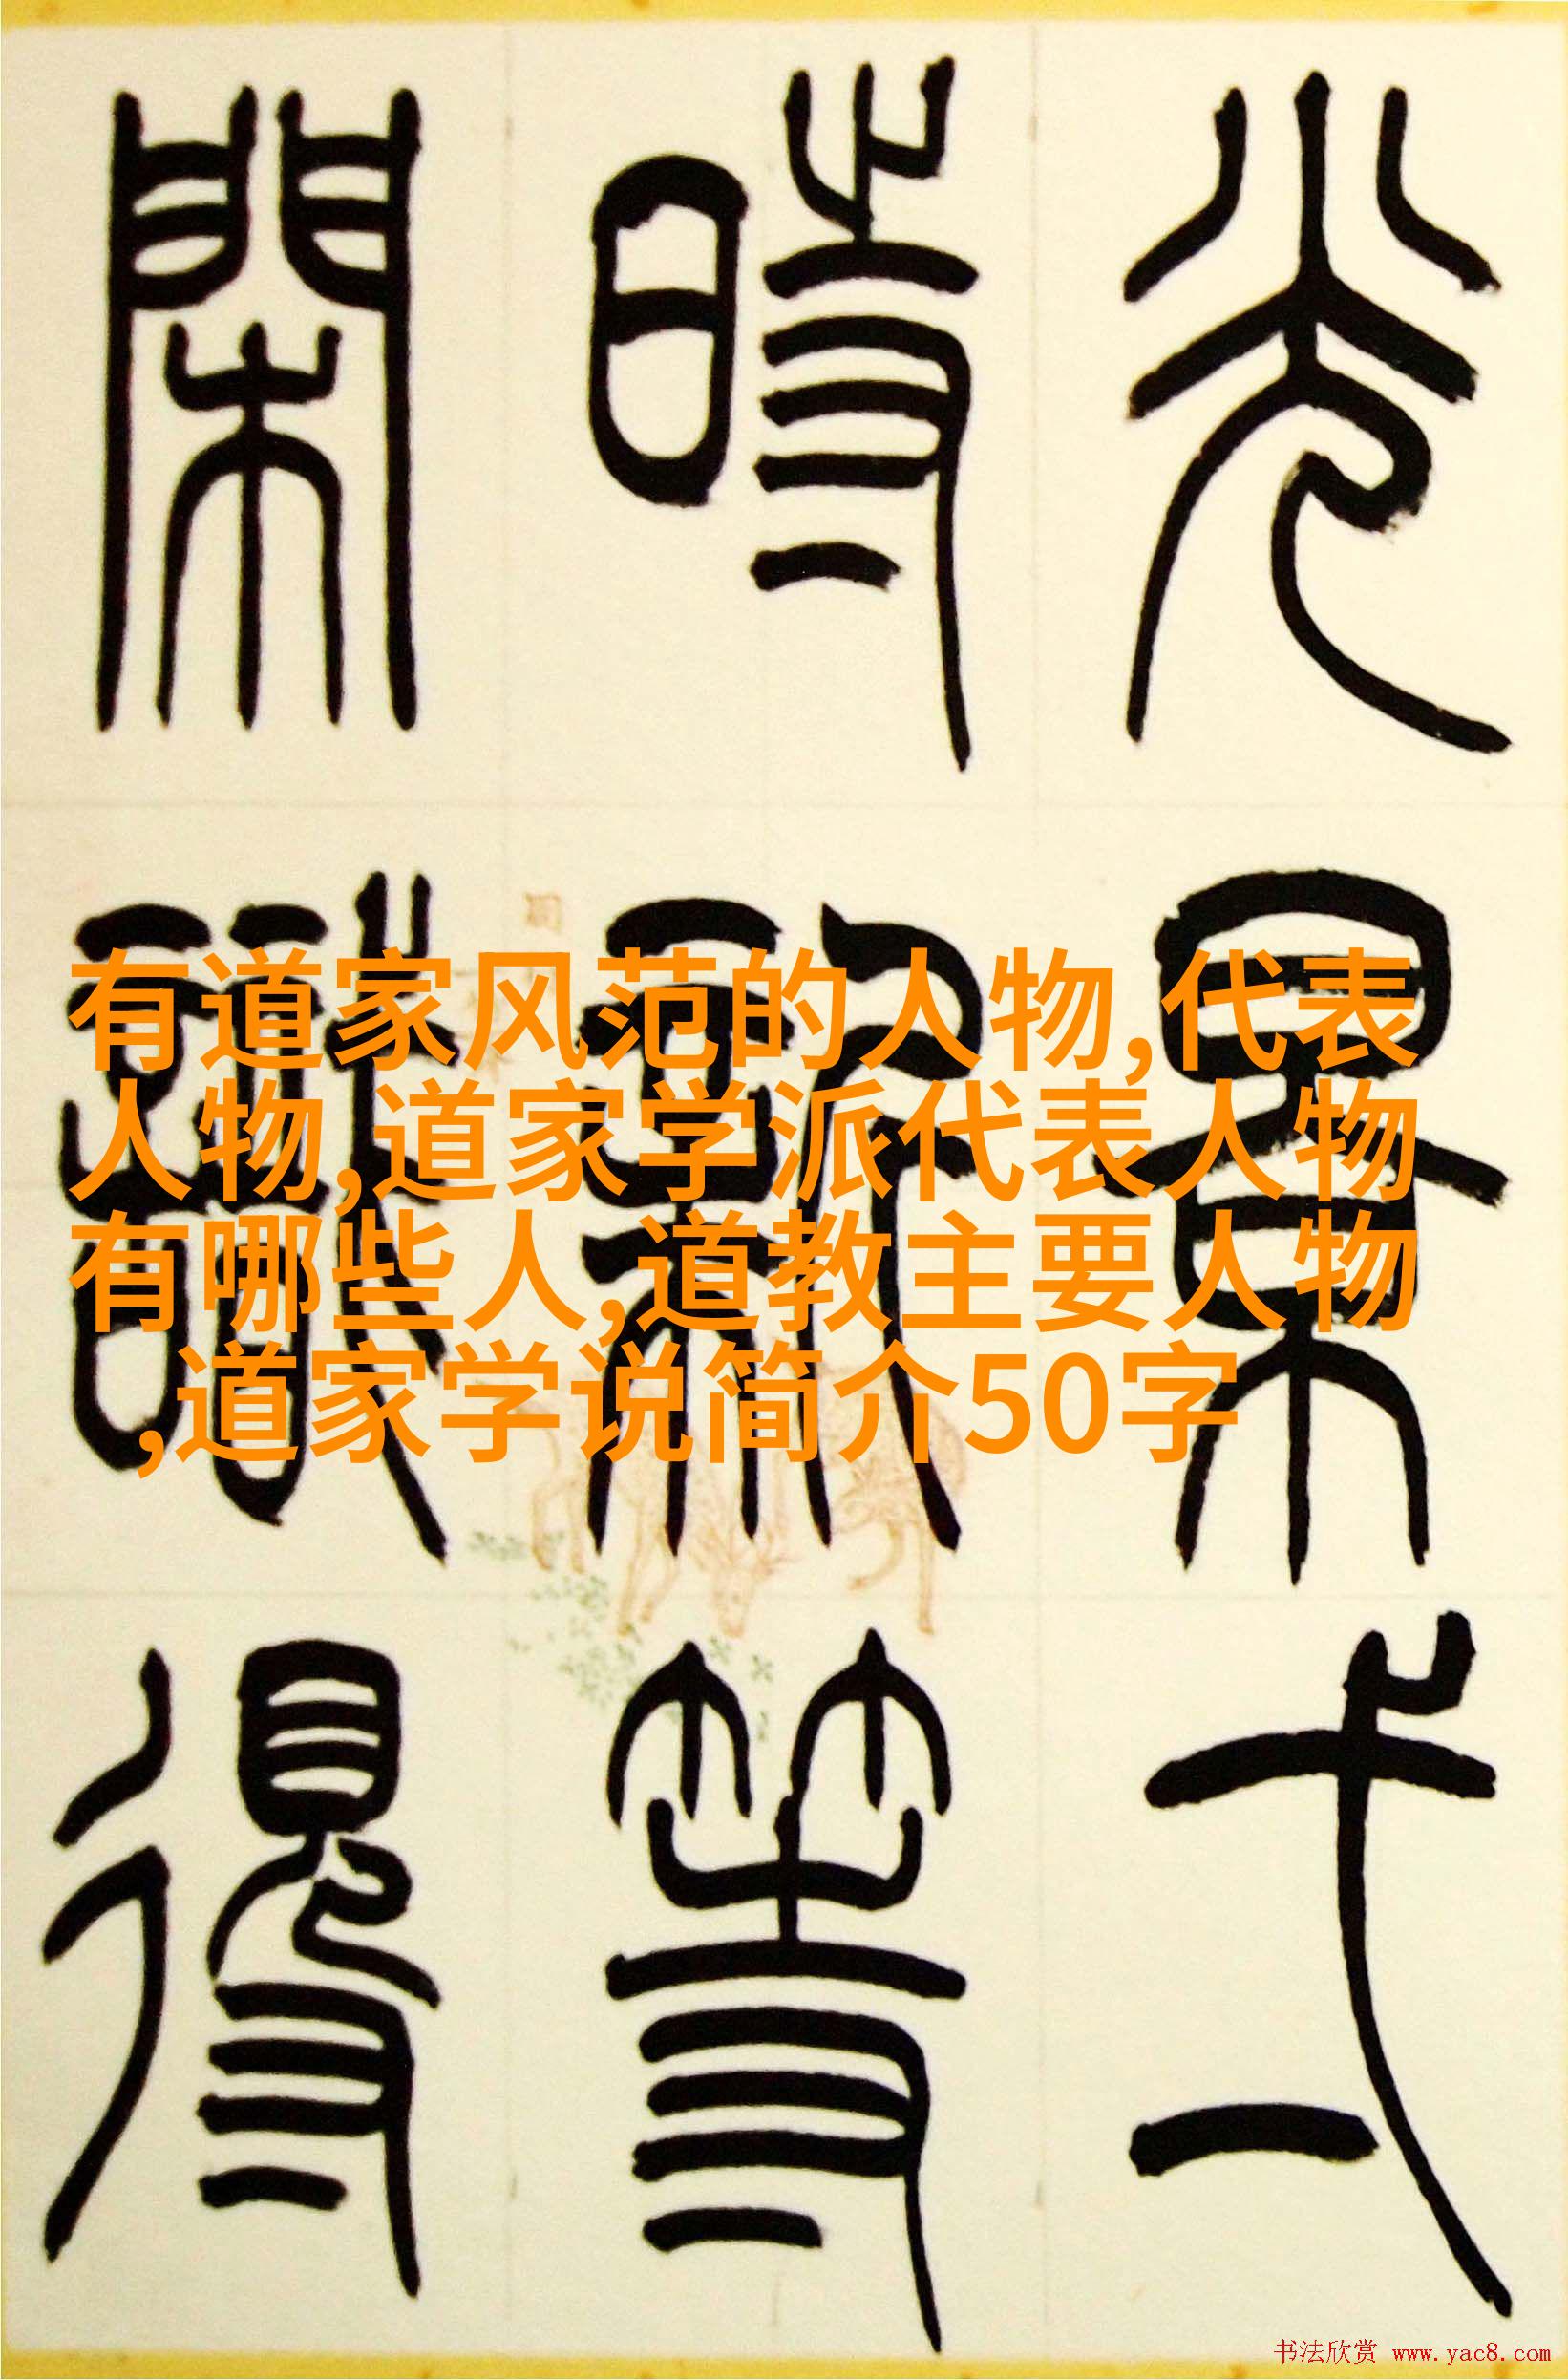 光景弌
時新等
閑識得
有道家风范的人物,代表
人物,道家学派代表人物
有哪些人,道教主要人物
,道家学说简介50字
书法欣赏 www.yac8.com